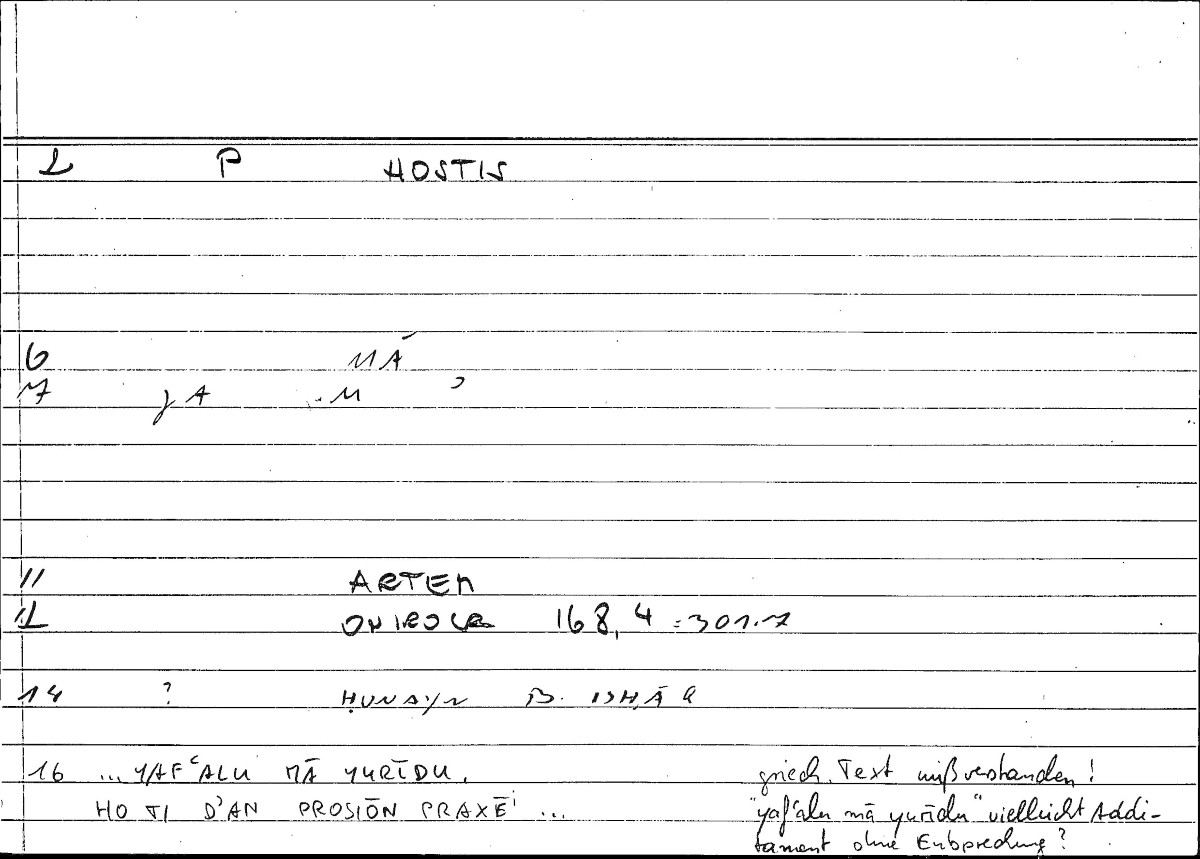 L P HOSTIS
6 MĀ
7 yA M ʾ
11 ARTEM
12 ONIROCR 168,4 = 301.7
14 ? ḤUNAYN B. ISḤĀQ
16 ... YAFʿALU MĀ YURĪDU.
griech. Text mißverstanden!
HO TI D'AN PROSIŌN PRAXĒ' ...
"yafʿalu mā yurīdu" vielleicht Addi-
tament ohne Entsprechung?